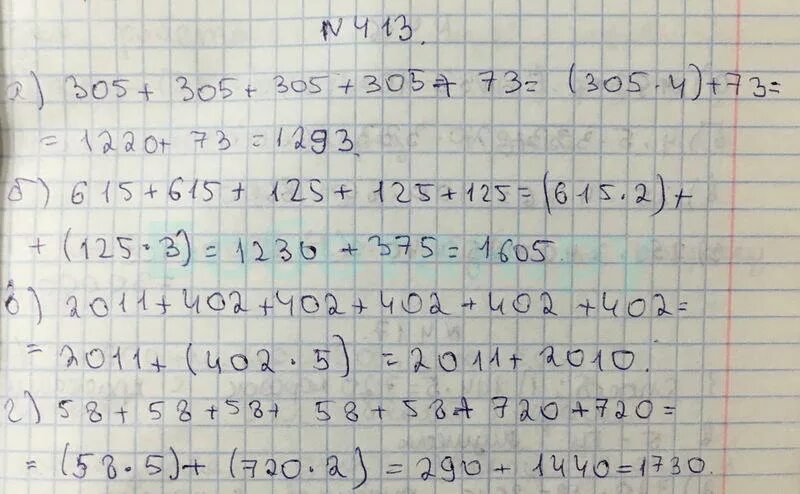 N 413.
а) 305 + 305 + 305 + 305 + 73 = (305 · 4) + 73 =
= 1220 + 73 = 1293.
б) 615 + 615 + 125 + 125 + 125 = (615 · 2) +
+ (125 · 3) = 1230 + 375 = 1605.
в) 2011 + 402 + 402 + 402 + 402 + 402 =
= 2011 + (402 · 5) = 2011 + 2010.
г) 58 + 58 + 58 + 58 + 58 + 720 + 720 =
= (58 · 5) + (720 · 2) = 290 + 1440 = 1730.